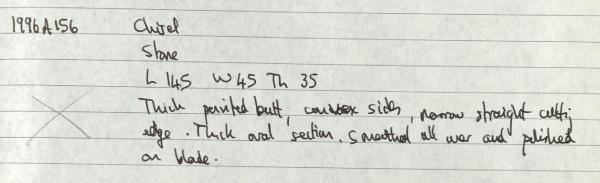 1996A156 Chisel
Stone
L 145 W 45 Th 35
Thick pointed butt, convex sides, narrow straight cutting
edge. Thick oval section. Smoothed all over and polished
on blade.